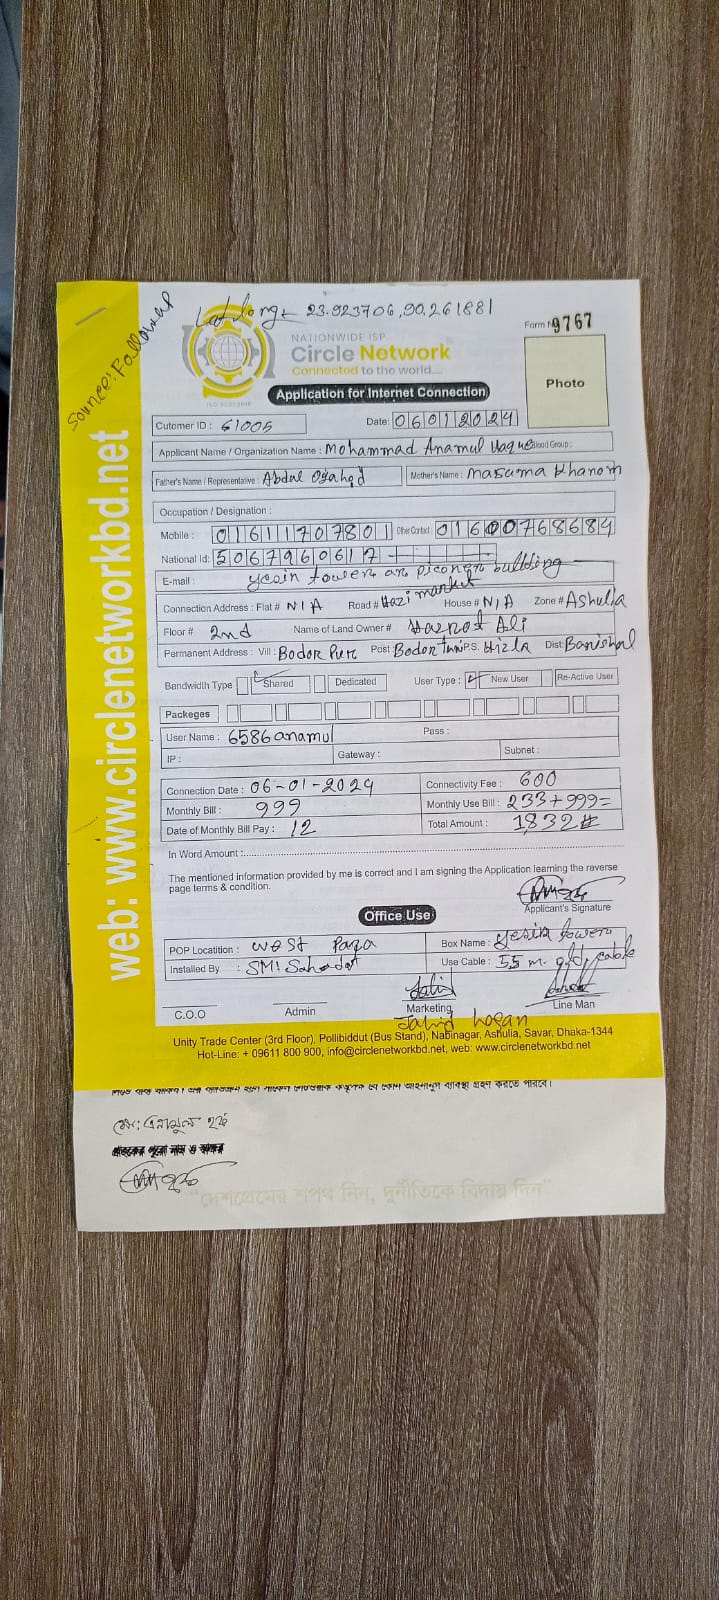 Lat Long 23.923706,90.261881
Source: Follower
Form N 9767
NATIONWIDE ISP
Circle Network
Connected to the world....
Photo
Application for Internet Connection
Cutomer ID : 61005 Date: 06012024
Applicant Name / Organization Name : Mohammad Anamul Haque Blood Group :
Father's Name / Representative : Abdul Mother's Name : Masuma Khanom
Occupation / Designation :
Mobile : 01611707801 Other Contact : 01600768684
National Id: 5067960617
E-mail : yesin tower building
Connection Address : Flat # N/A Road # Hazi market House # N/A Zone # Ashulia
Floor # 2nd Name of Land Owner # Hazrot Ali
Permanent Address : Vill : Bodor Pur Post Bodor P.S. Hizla Dist: Barishal
Bandwidth Type Shared Dedicated User Type : New User Re-Active User
Packeges
User Name : 6586anamul Pass :
IP : Gateway : Subnet :
Connection Date : 06-01-2024 Connectivity Fee : 600
Monthly Bill : 999 Monthly Use Bill : 233+999=
Date of Monthly Bill Pay : 12 Total Amount : 1832
In Word Amount :
The mentioned information provided by me is correct and I am signing the Application learning the reverse
page terms & condition.
Applicant's Signature
Office Use
POP Locatition : West Para Box Name : yesin tower
Installed By : SM: Sahadat Use Cable : 55 m. cable
C.O.O Admin Marketing Line Man
Jahid hasan
Unity Trade Center (3rd Floor), Pollibiddut (Bus Stand), Nabinagar, Ashulia, Savar, Dhaka-1344
Hot-Line: + 09611 800 900, info@circlenetworkbd.net, web: www.circlenetworkbd.net
web: www.circlenetworkbd.net
মো: এনামুল হক
গ্রাহকের পুরো নাম ও স্বাক্ষর
"দেশপ্রেমের শপথ নিন, দুর্নীতিকে বিদায় দিন"